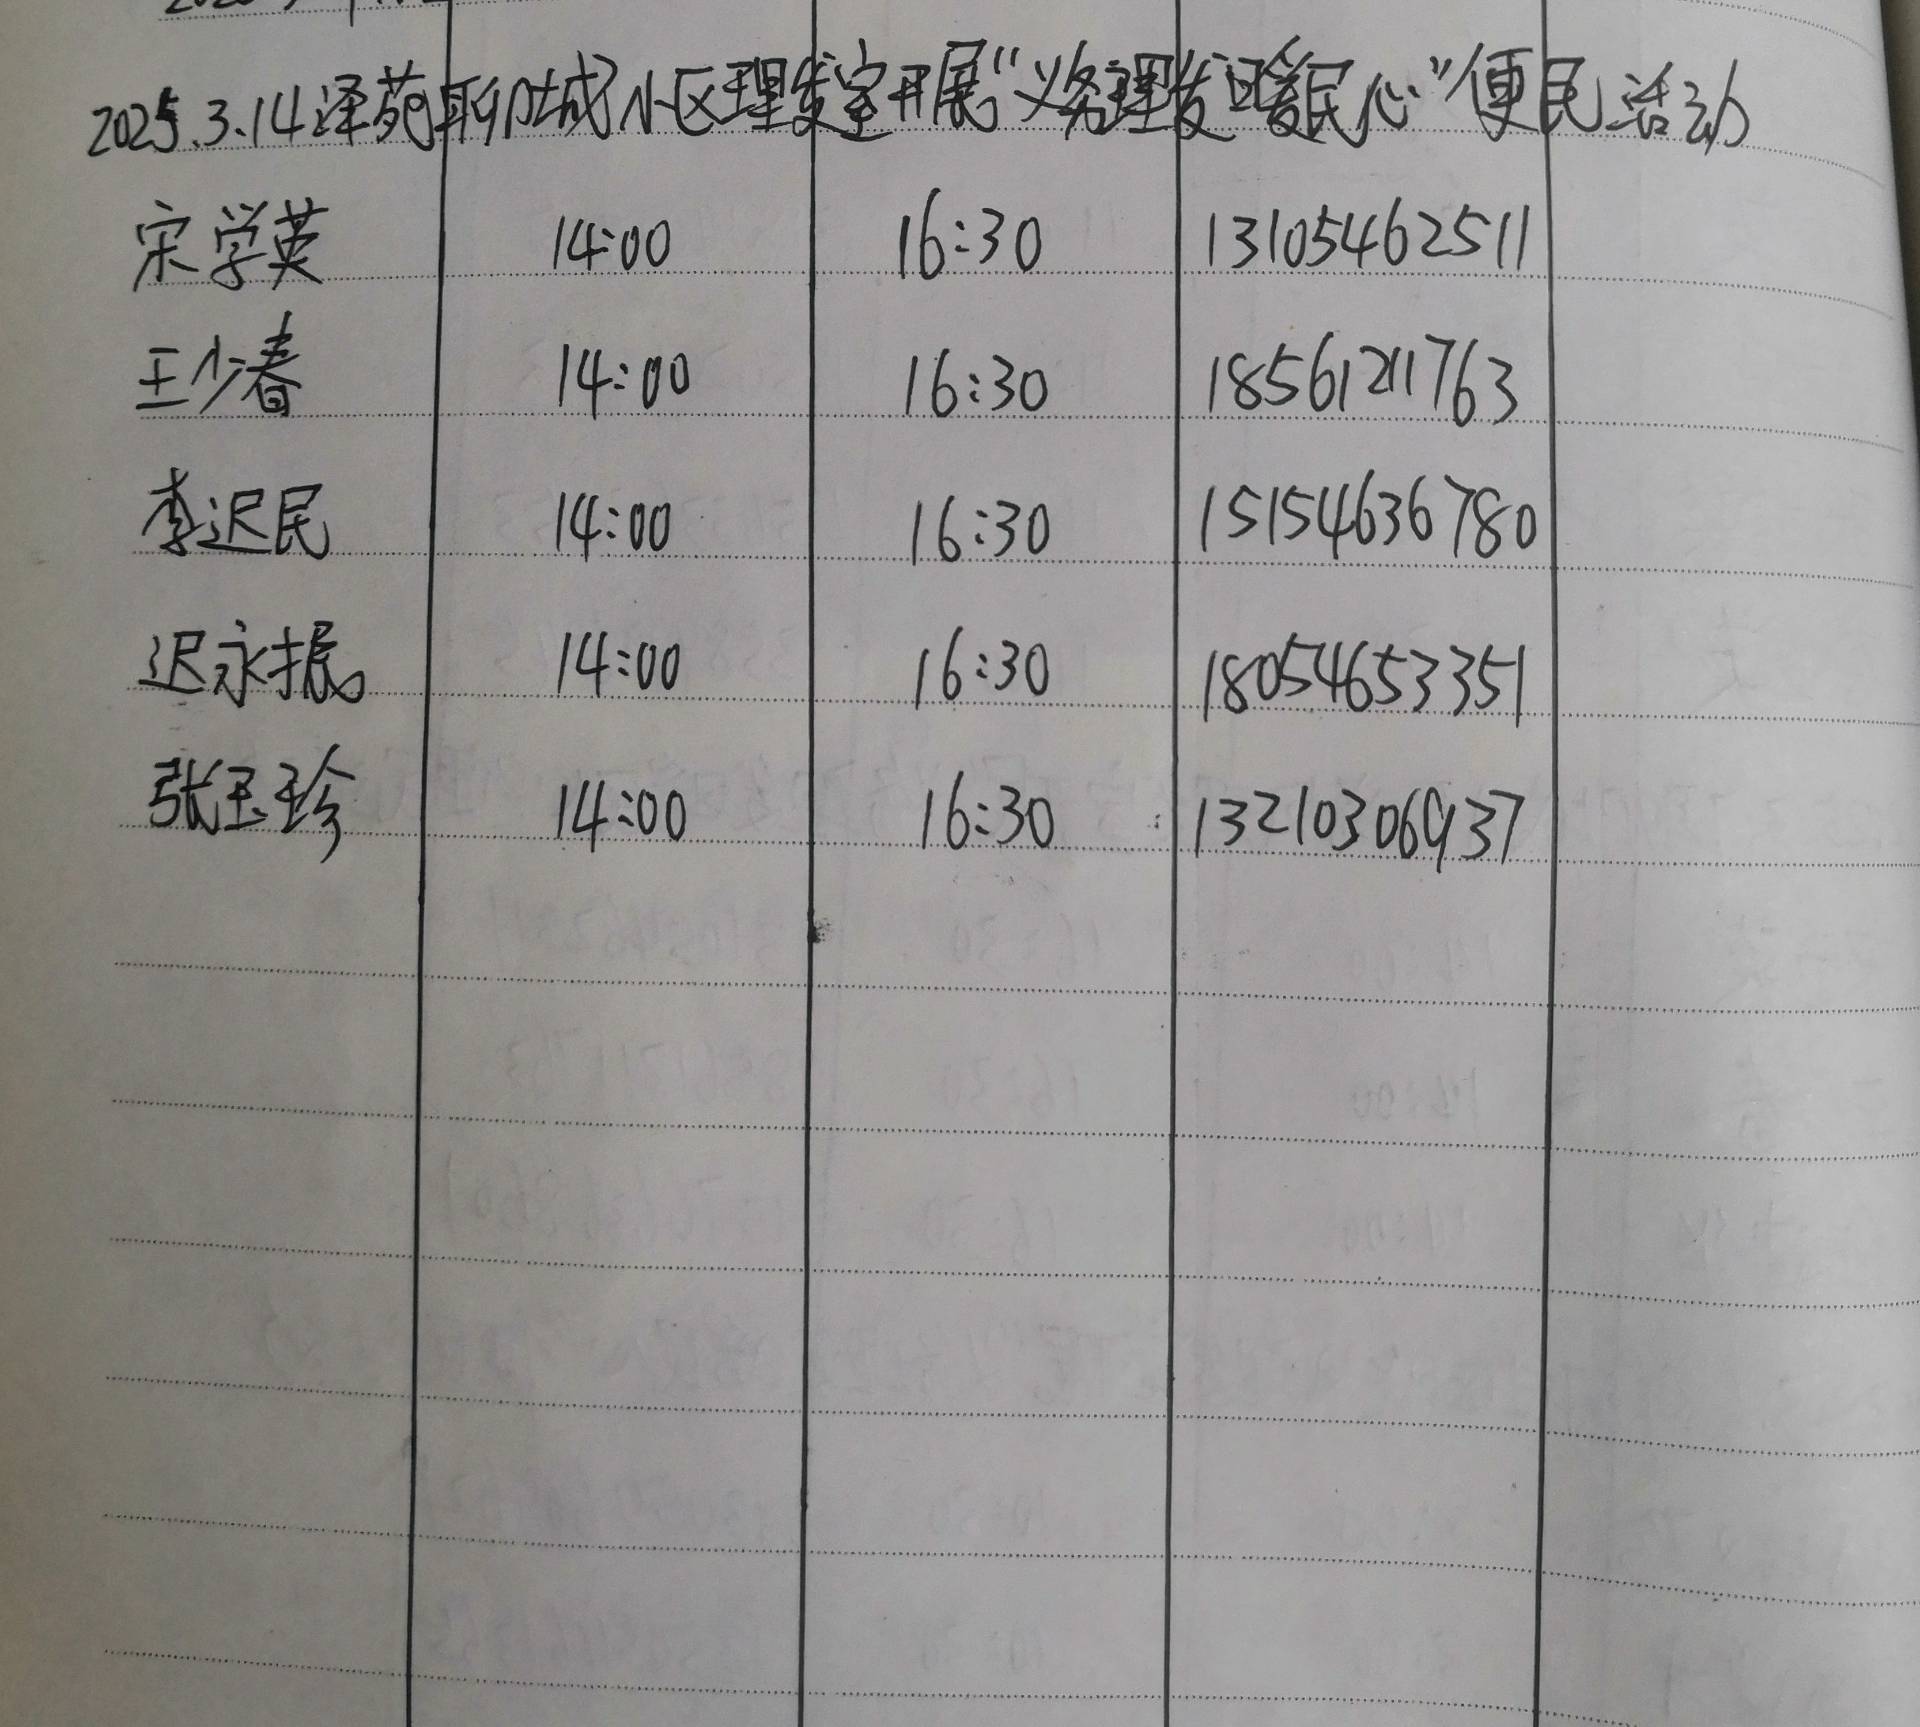 2025.3.14泽苑聊城小区理发室开展“义务理发暖民心”便民活动
宋学英 14:00 16:30 13105462511
王少春 14:00 16:30 18561211763
李迟民 14:00 16:30 15154636780
迟永振 14:00 16:30 18054653351
张玉珍 14:00 16:30 13210306937